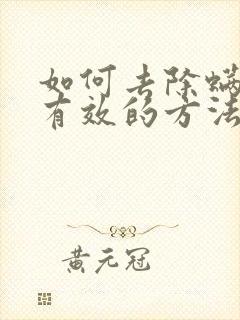 如何去除螨
有效的方法
黄元冠